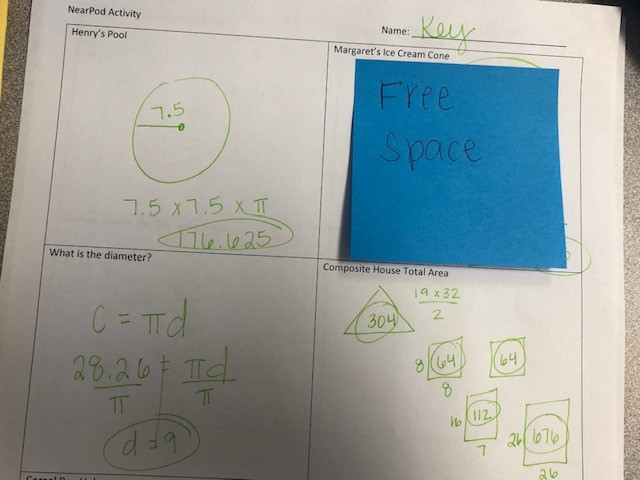 NearPod Activity
Name: Key
Henry's Pool
7.5
7.5 x 7.5 x π
176.625
Margaret's Ice Cream Cone
Free
Space
What is the diameter?
C = πd
28.26 = πd
π π
d = 9
Composite House Total Area
304
19 x 32
2
8 64
8
64
16 112
7
26 676
26